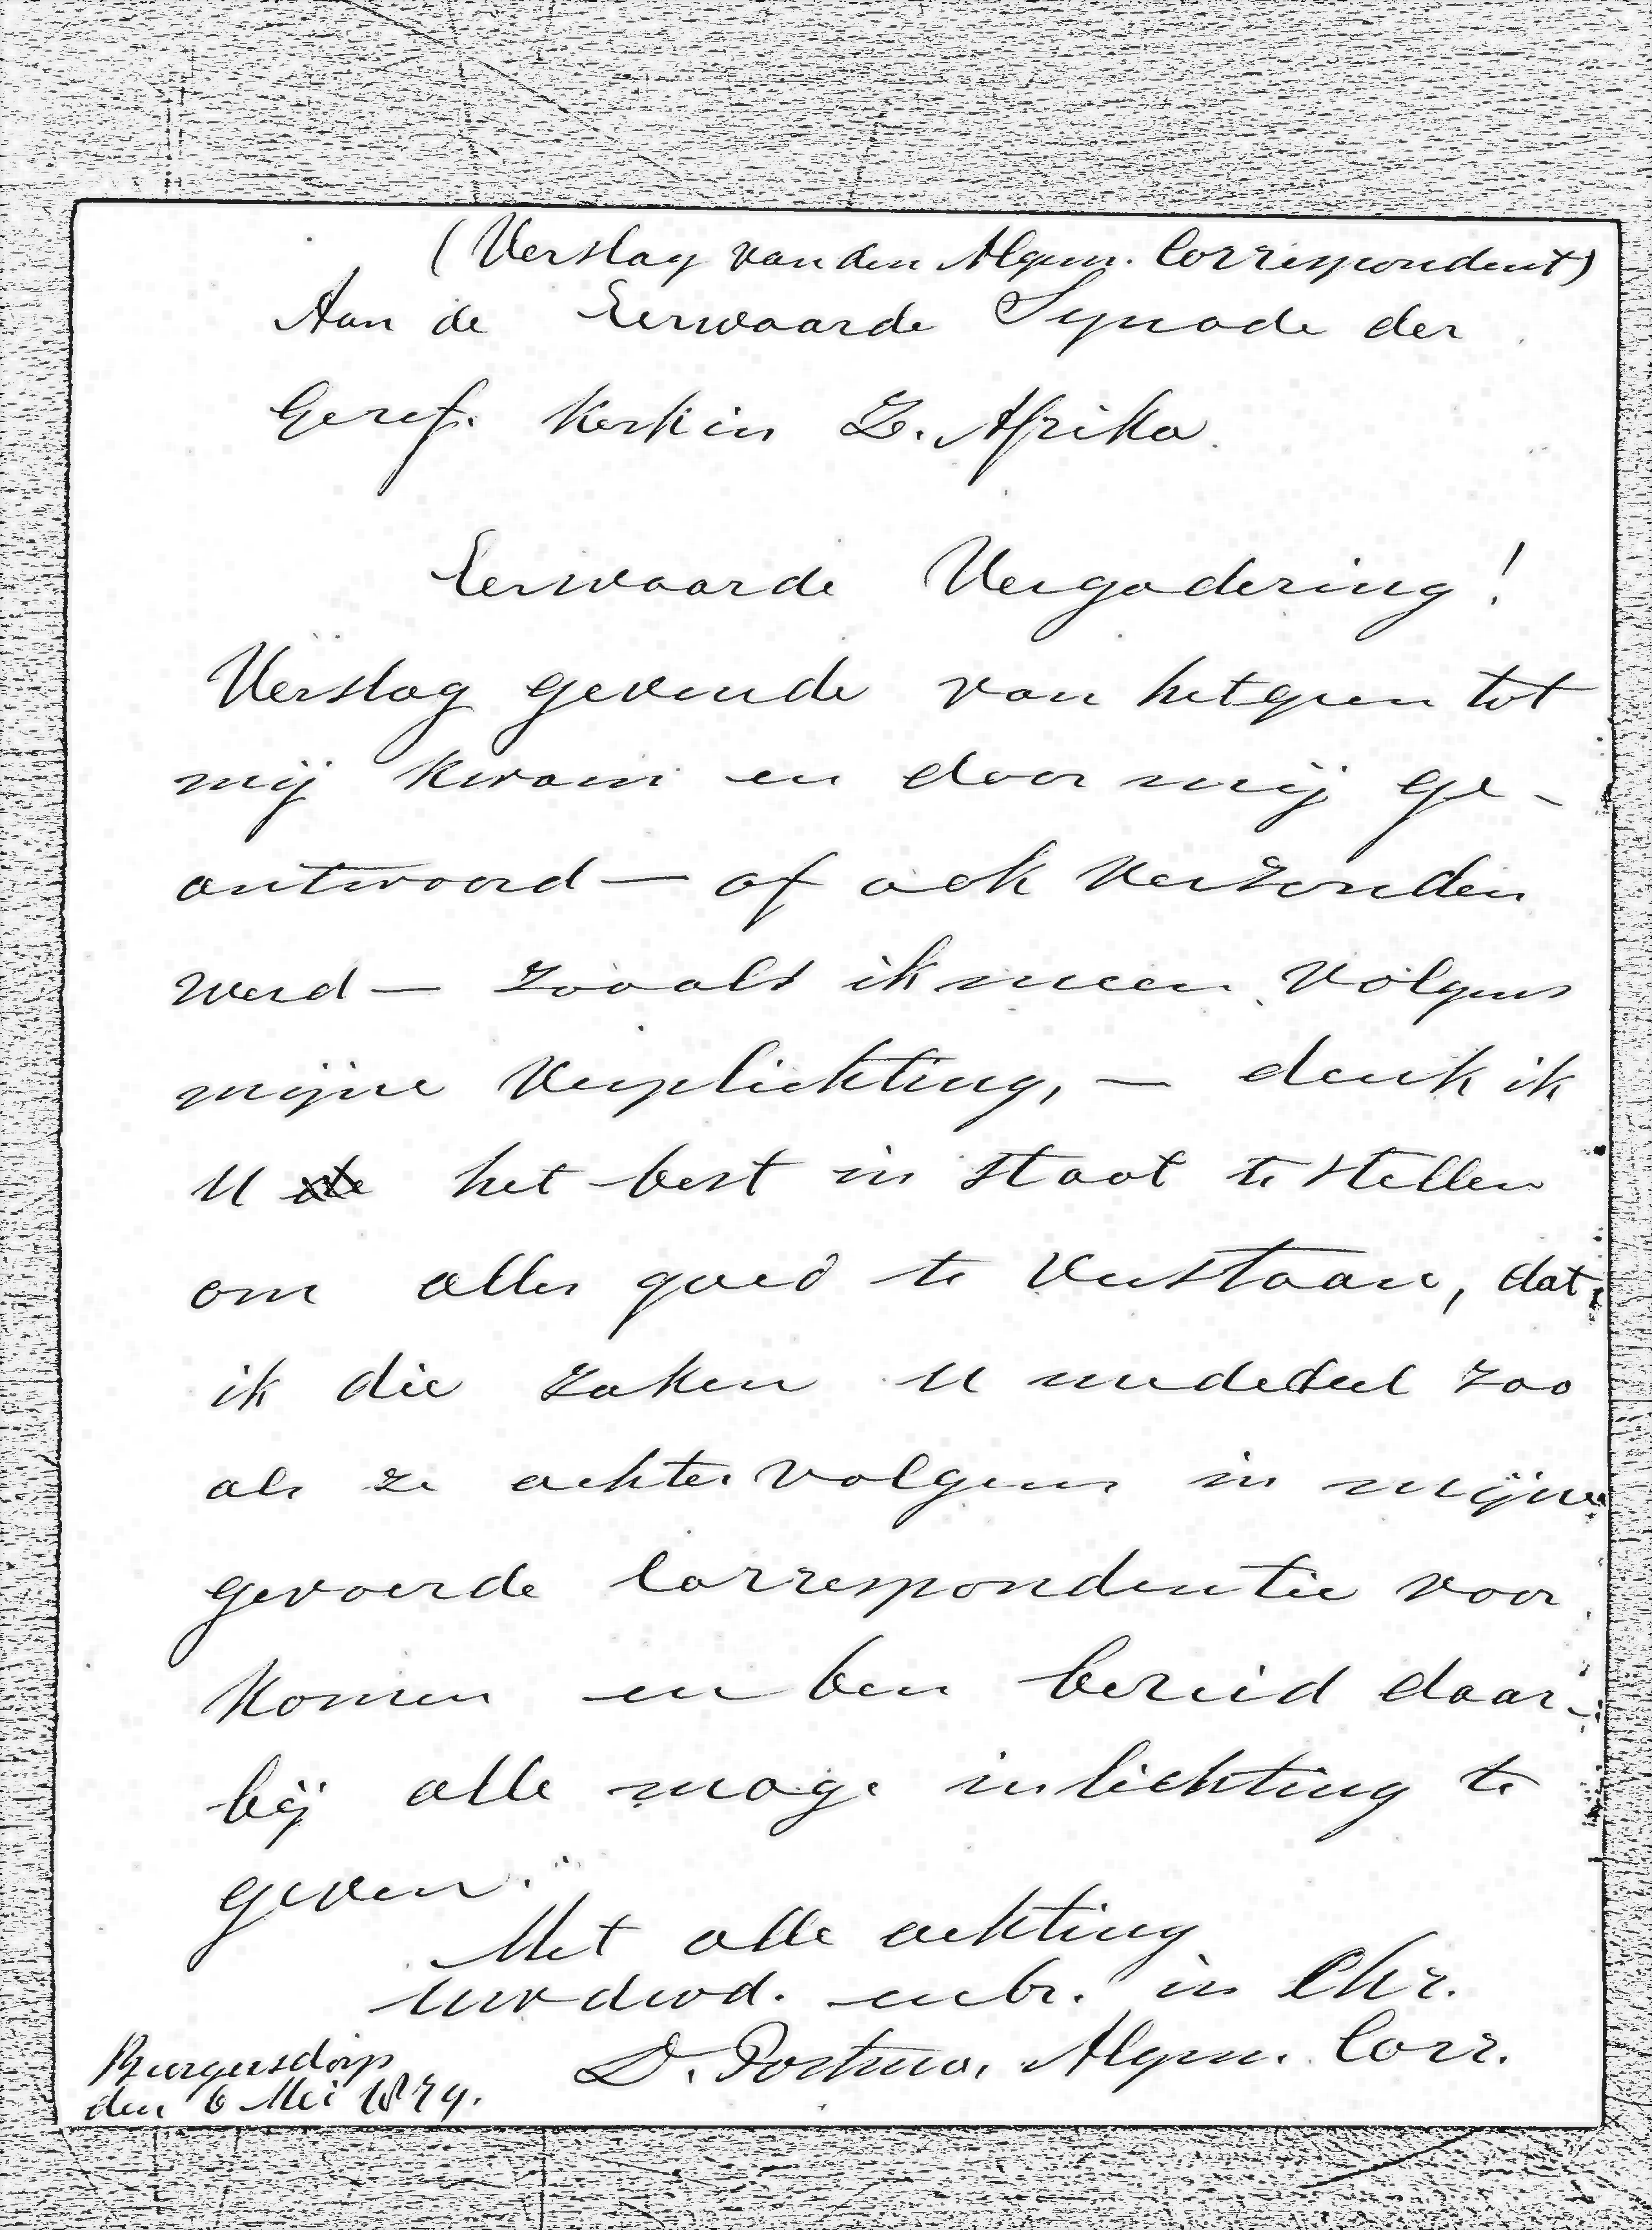 (Verslag van den Algem. Correspondent)
Aan de Eerwaarde Synode der
Geref. Kerk in Z. Afrika.
Eerwaarde Vergadering!
Verslag gevende van hetgeen tot
mij kwam en door mij ge-
antwoord — of ook verzonden
werd — zooals ik meen volgens
mijne verplichting, — denk ik
U de het best in staat te stellen
om alles goed te verstaan, dat
ik die zaken U mededeel zoo
als ze achtervolgens in mijne
gevoerde Correspondentie voor
komen en ben bereid daar-
bij alle mog. inlichting te
geven.
Met alle achting
Uw dwd. mbr. in Chr.
D. Postma, Algem. Corr.
Burgersdorp
den 6 Mei 1879.